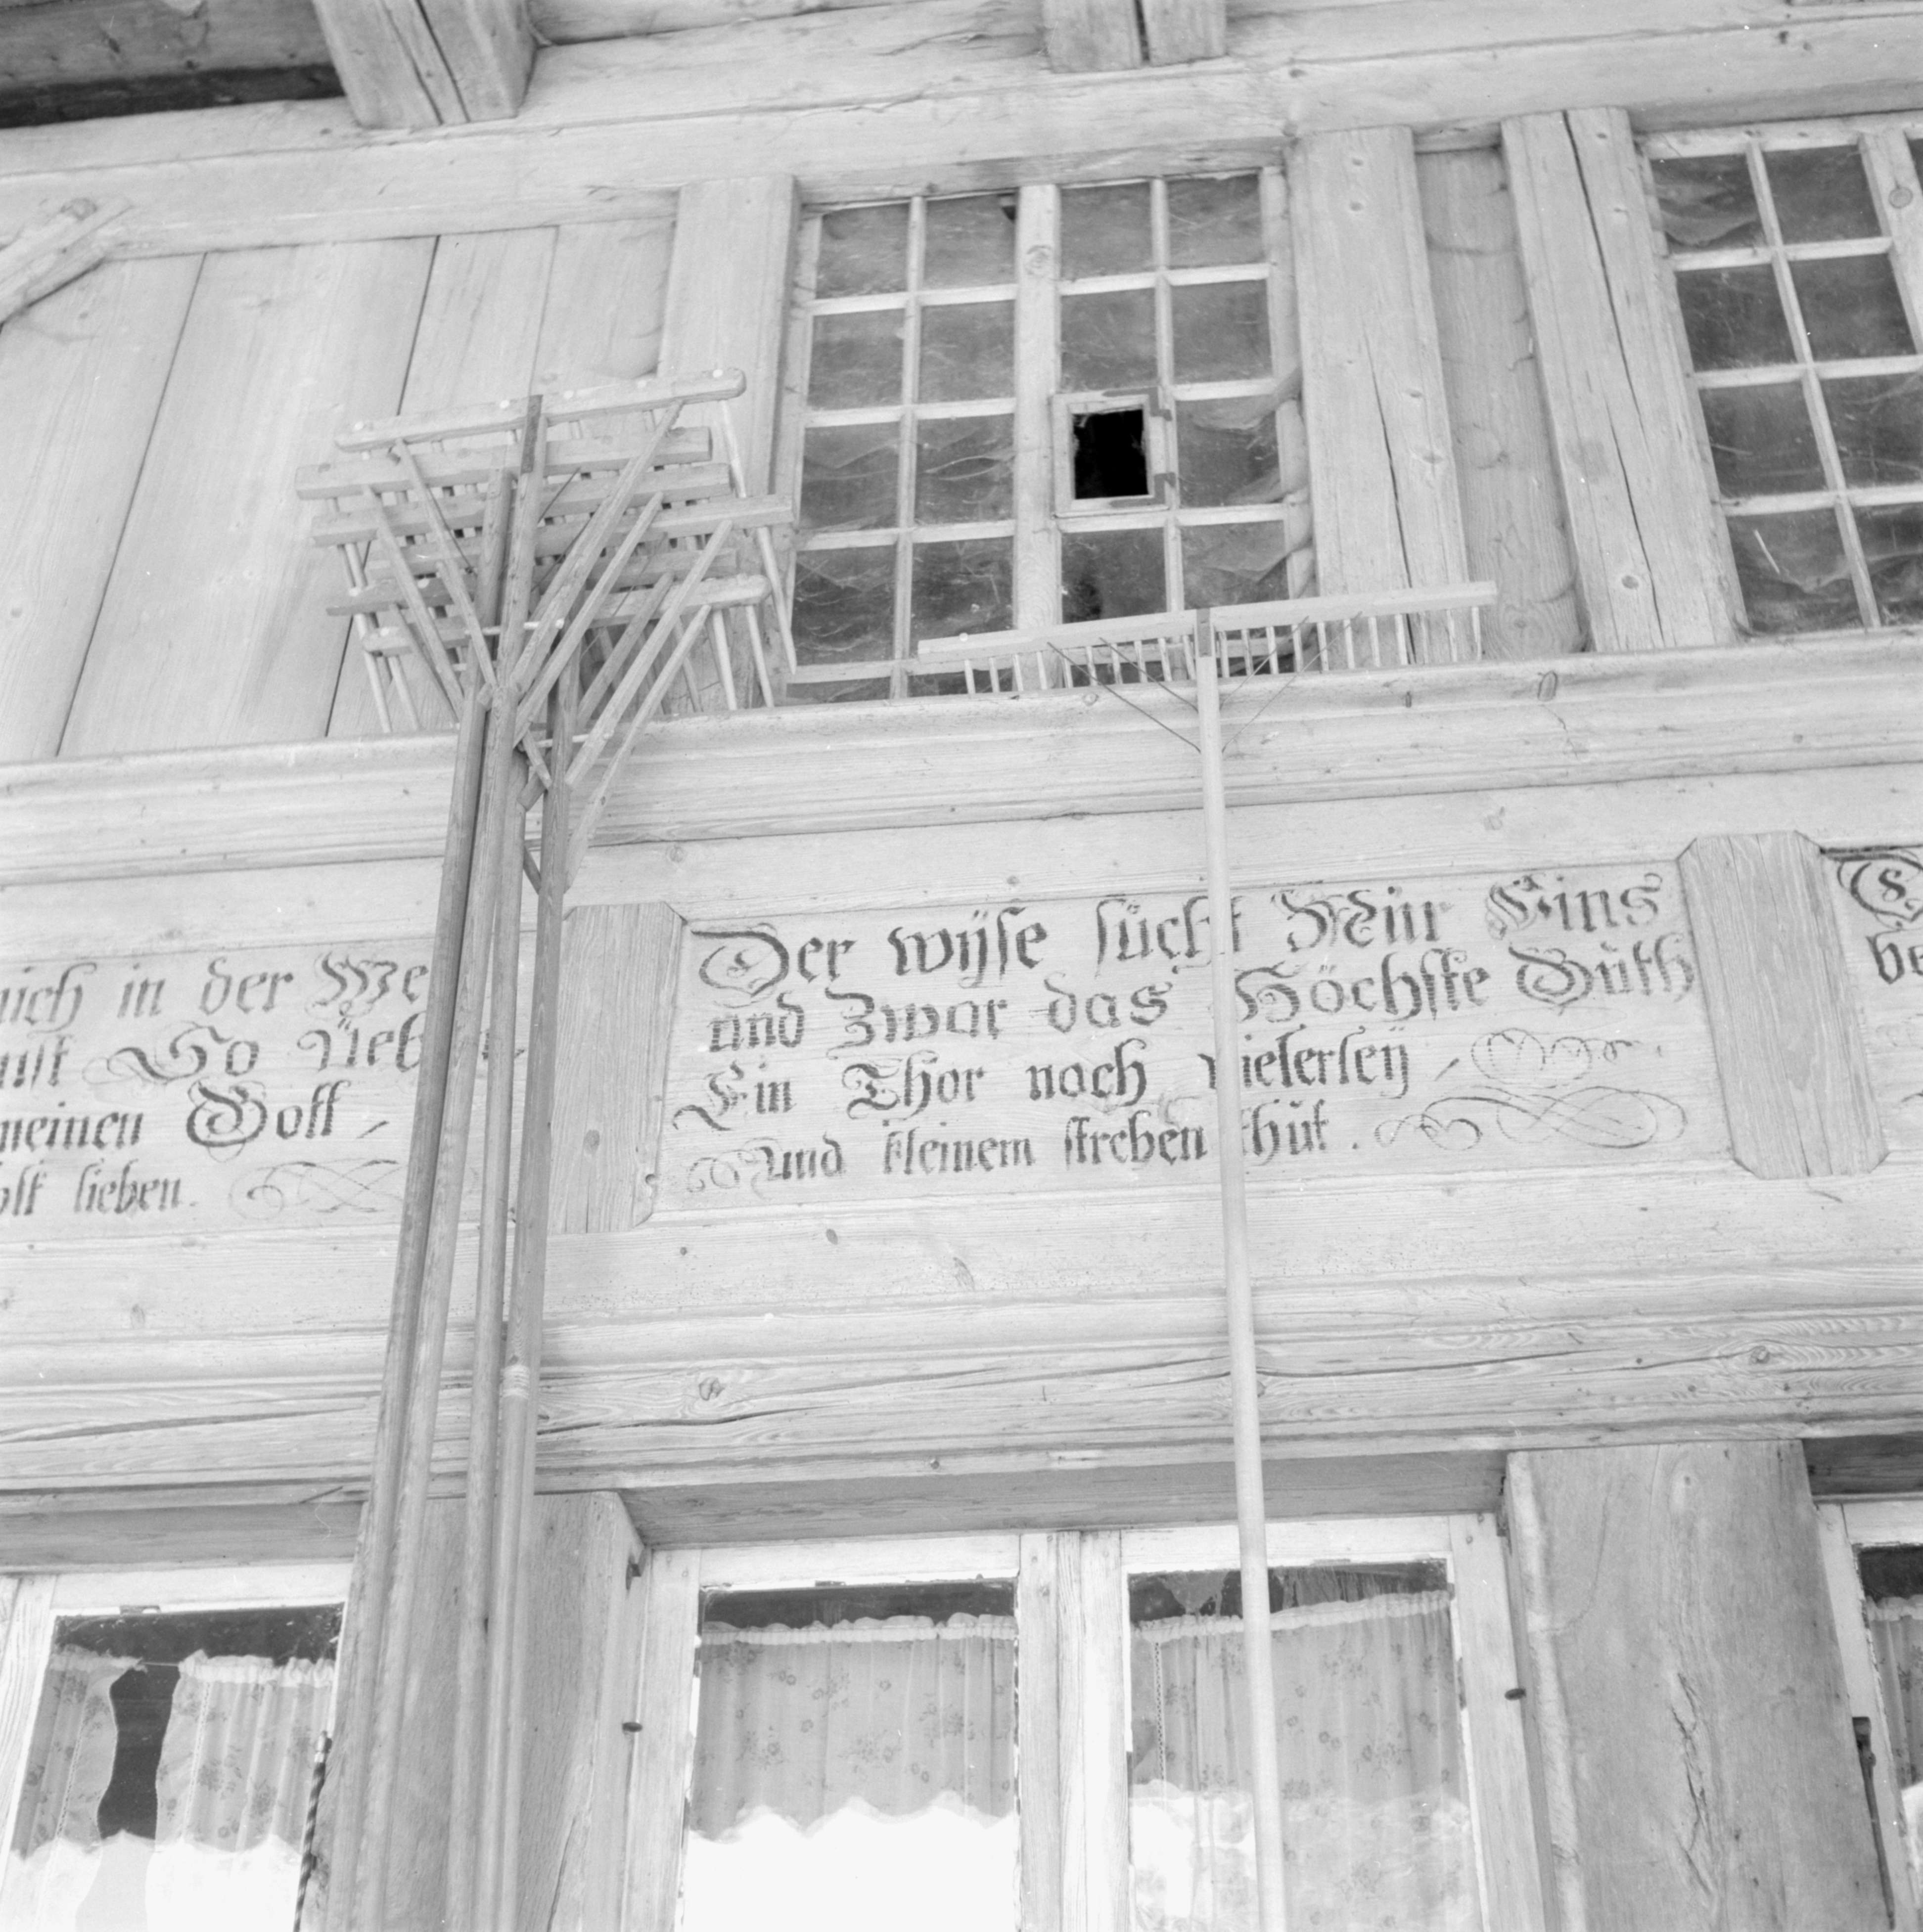 in der
So
meinen Gott
lieben.
Der wÿse sücht Nür Eins
und Zwar das Höchste Gůth
Ein Thor nach vielerleÿ
und kleinem streben thůt.